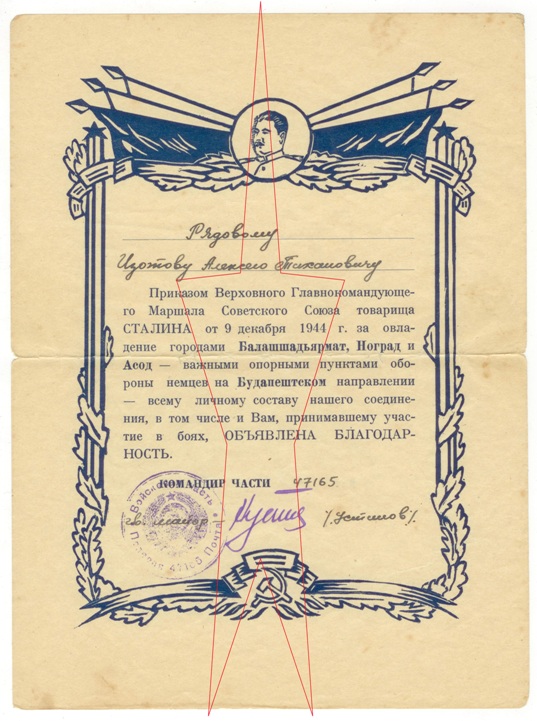 Рядовому
Изотову Алексею Тихановичу
Приказом Верховного Главнокомандующе-
го Маршала Советского Союза товарища
СТАЛИНА от 9 декабря 1944 г. за овла-
дение городами Балашшадьярмат, Ноград и
Асод — важными опорными пунктами обо-
роны немцев на Будапештском направлении
— всему личному составу нашего соедине-
ния, в том числе и Вам, принимавшему учас-
тие в боях, ОБЪЯВЛЕНА БЛАГОДАР-
НОСТЬ.
КОМАНДИР ЧАСТИ 47165
гв. майор /Устинов/.
Войсковая часть Полевая почта